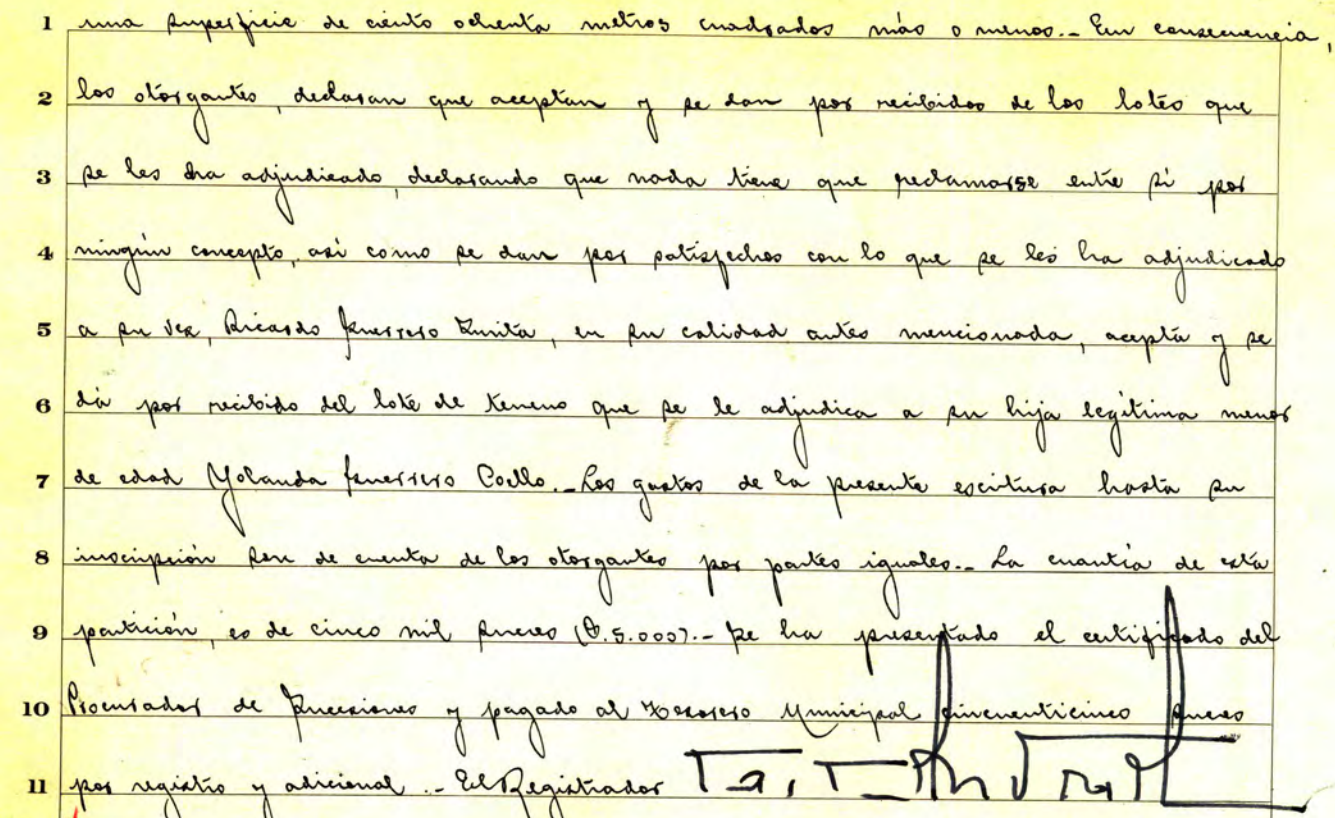 1 una superficie de ciento ochenta metros cuadrados más o menos.- En consecuencia,
2 los otorgantes, declaran que aceptan y se dan por recibidos de los lotes que
3 se les ha adjudicado, declarando que nada tiene que reclamarse entre sí por
4 ningún concepto, así como se dan por satisfechos con lo que se les ha adjudicado
5 a su vez, Ricardo Guerrero Zurita, en su calidad antes mencionada, acepta y se
6 dá por recibido del lote de terreno que se le adjudica a su hija legítima menor
7 de edad Yolanda Guerrero Coello.- Los gastos de la presente escritura hasta su
8 inscripción son de cuenta de los otorgantes por partes iguales.- La cuantía de esta
9 partición, es de cinco mil sucres (S. 5.000).- Se ha presentado el certificado del
10 Procurador de Sucesiones y pagado al Tesorero Municipal cincuenticinco sucres
11 por registro y adicional.- El Registrador